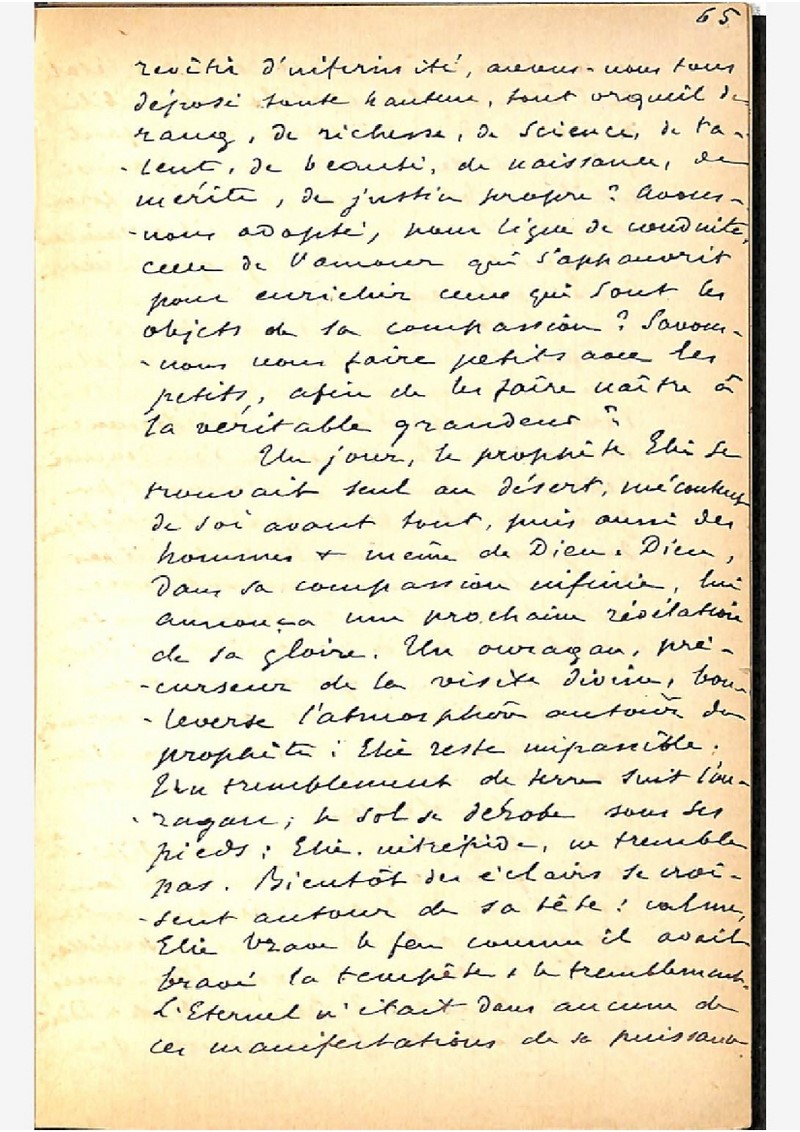 65
revêtir d'infirmité, avons-nous tous
déposé toute hauteur, tout orgueil de
rang, de richesse, de science, de ta-
-lent, de beauté, de naissance, de
mérite, de justice propre ? Avons-
-nous adopté, pour ligne de conduite,
celle de l'amour qui s'appauvrit
pour enrichir ceux qui sont les
objets de sa compassion ? Savons-
-nous nous faire petits avec les
petits, afin de les faire naître à
la véritable grandeur ?
Un jour, le prophète Elie se
trouvait seul au désert, mécontent
de soi avant tout, puis aussi des
hommes & même de Dieu. Dieu,
dans sa compassion infinie, lui
annonça une prochaine révélation
de sa gloire. Un ouragan, pré-
-curseur de la visite divine, bou-
-leverse l'atmosphère autour du
prophète : Elie reste impassible.
Un tremblement de terre suit l'ou-
-ragan ; le sol se dérobe sous ses
pieds : Elie, intrépide, ne tremble
pas. Bientôt des éclairs se croi-
-sent autour de sa tête : calme,
Elie brave le feu comme il avait
bravé la tempête & le tremblement.
L'Eternel n'était dans aucune de
ces manifestations de sa puissance